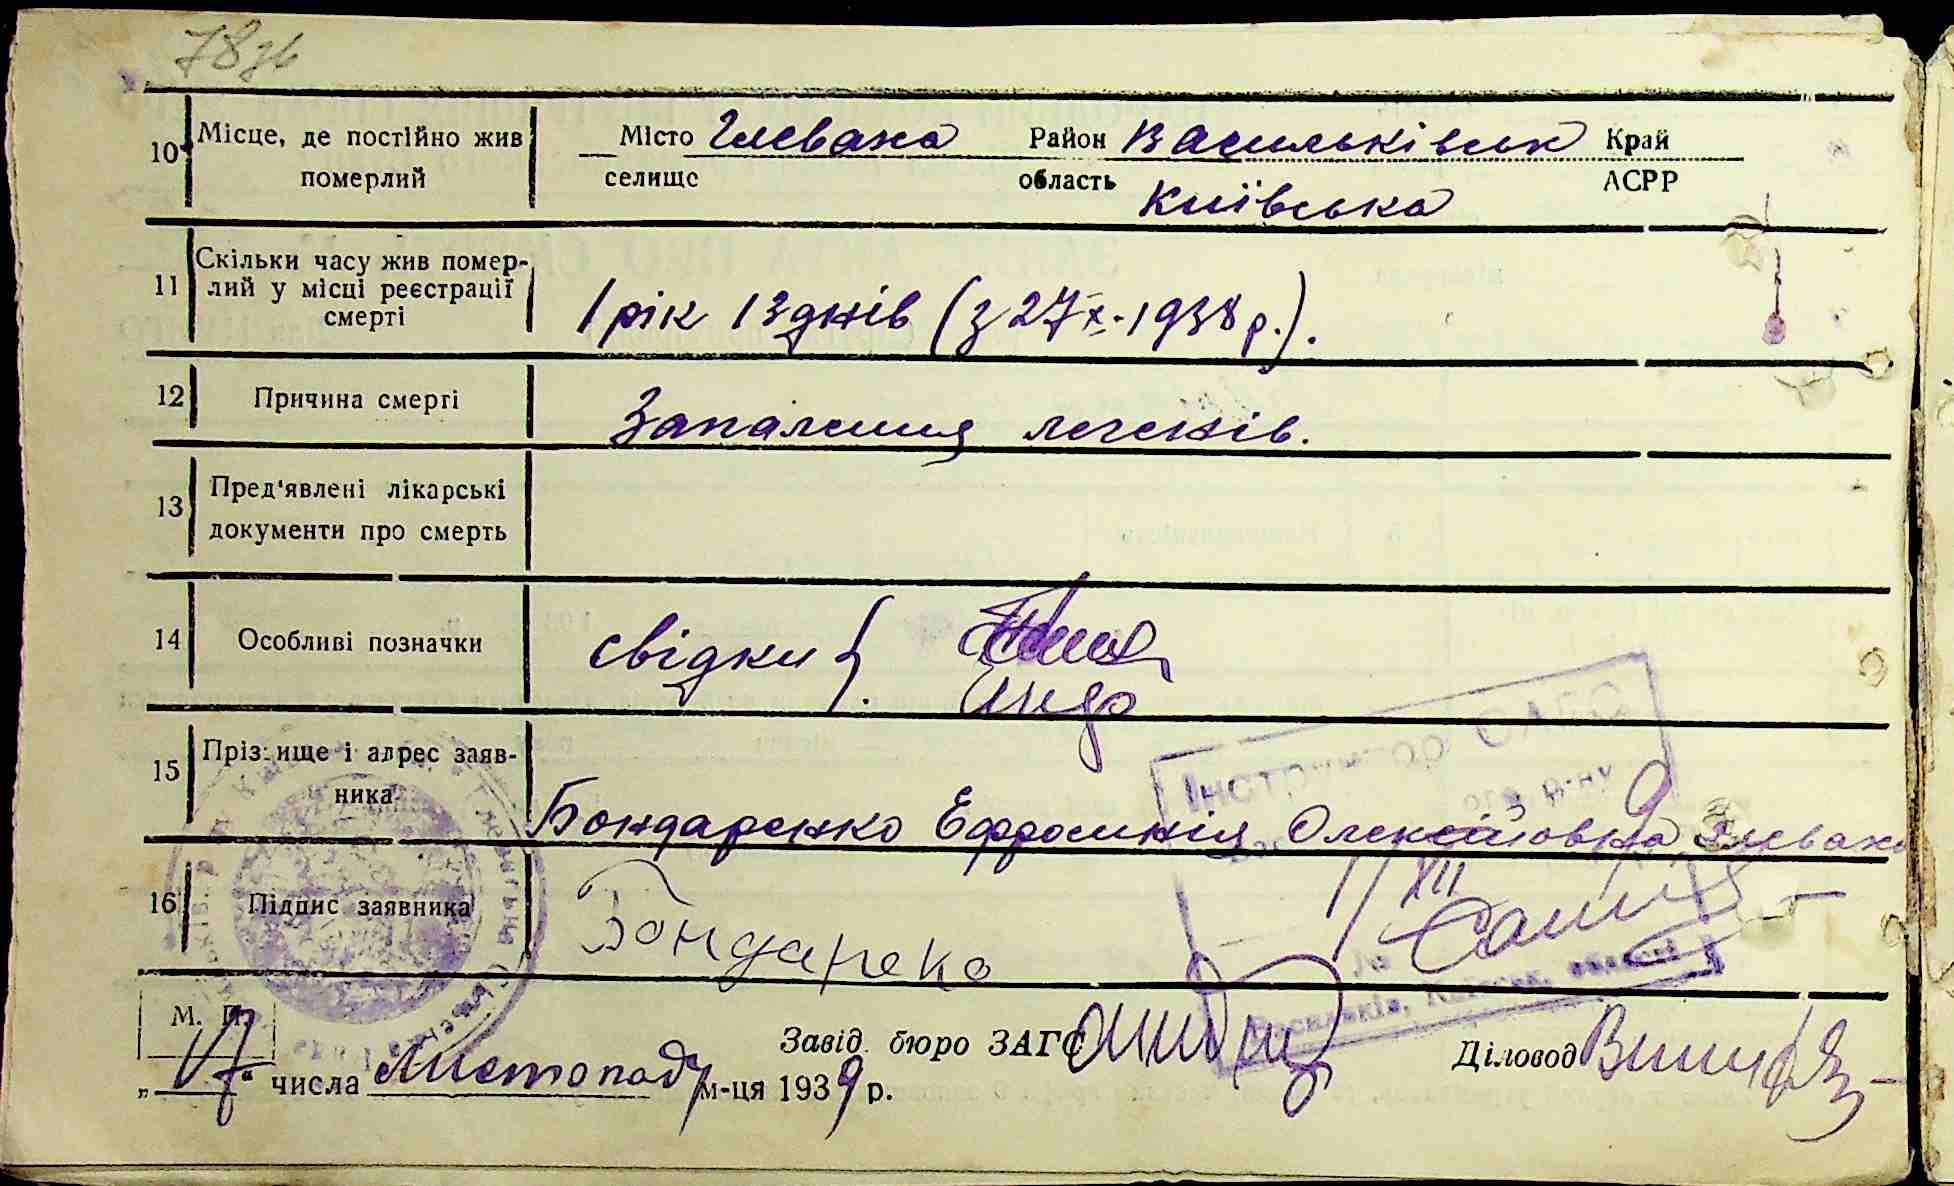 78зв
10 Місце, де постійно жив Місто Глеваха Район Васильківськ Край
померлий селище область Київська АСРР
Скільки часу жив помер-
11 лий у місці реєстрації 1 рік 13 днів (з 27 X. 1938 р.).
смерті
12 Причина смерті Запалення легенів.
Пред'явлені лікарські
13 документи про смерть
14 Особливі позначки свідки {
Інструктор ОАГС
15 Прізвище і адрес заяв-
ника Бондаренко Ефросинія Олексійовна Глеваха
16 Підпис заявника Бондареко
XII
Васильків, Київськ. області
М. П. Завід. бюро ЗАГС Діловод
„17“ числа Листопаду м-ця 1939 р.